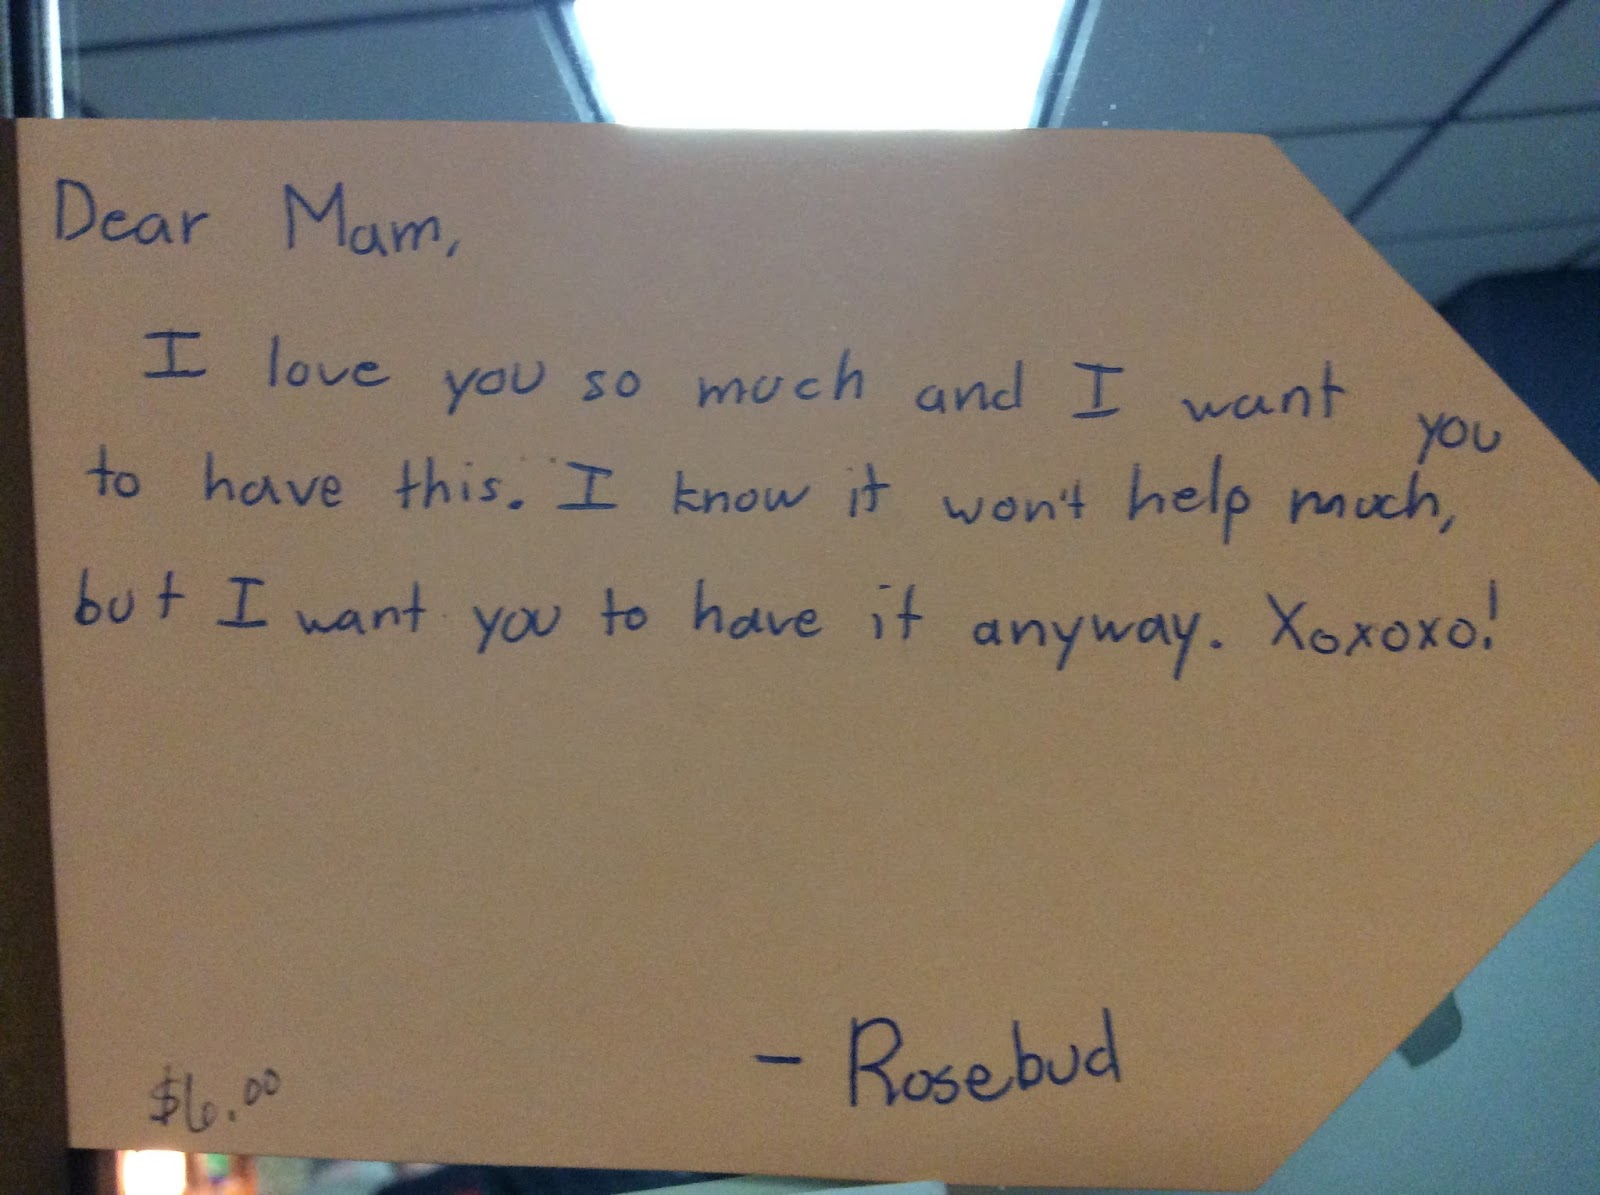 Dear Mam,
I love you so much and I want you
to have this. I know it won't help much,
but I want you to have it anyway. Xoxoxo!
- Rosebud
$6.00